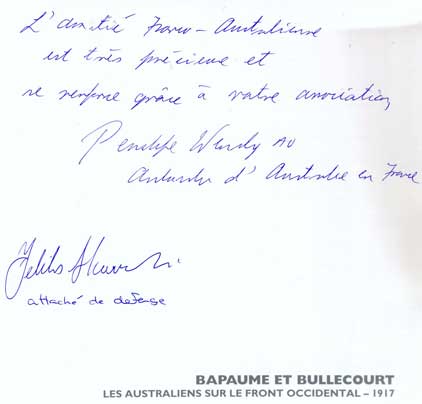 L'amitié Franco-Australienne
est très précieuse et
se renforce grâce à votre association
Penelope Wensley AO
d'Australie en France
attaché de defense
BAPAUME ET BULLECOURT
LES AUSTRALIENS SUR LE FRONT OCCIDENTAL – 1917